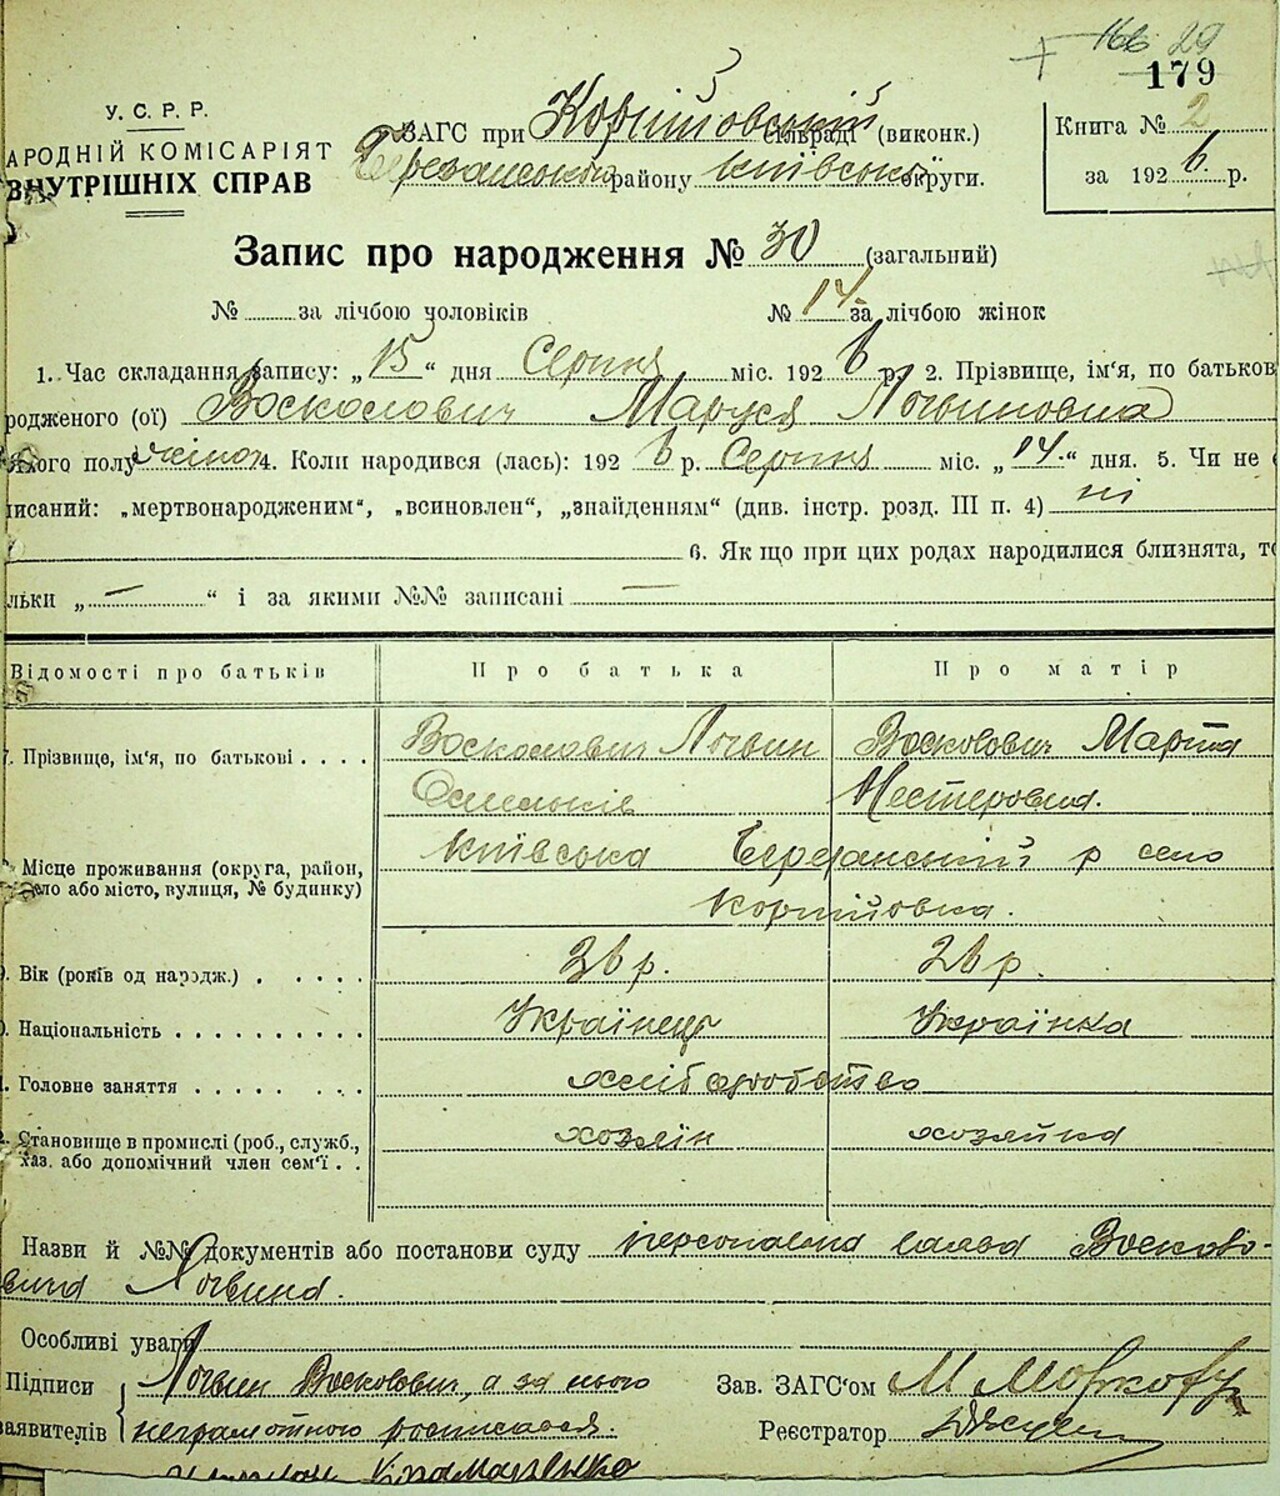 166 29
179
У. С. Р. Р.
АРОДНІЙ КОМІСАРІЯТ
ВНУТРІШНІХ СПРАВ
ЗАГС при Коржіовській сільраді (виконк.)
Березанського району Київської округи.
Книга № 2
за 1926 р.
Запис про народження № 30 (загальний)
№ за лічбою чоловіків № 14 за лічбою жінок
1. Час складання запису: „15“ дня Серпня міс. 1926 р. 2. Прізвище, ім'я, по батьков
родженого (ої) Восколович Маруся Логвиновна
якого полу жіноч 4. Коли народився (лась): 1926 р. Серпня міс. „14.“ дня. 5. Чи не
писаний: „мертвонародженим“, „всиновлен“, „знайденням“ (див. інстр. розд. III п. 4) ні
6. Як що при цих родах народилися близнята, то
льки „—“ і за якими №№ записані —
Відомості про батьків Про батька Про матір
7. Прізвище, ім'я, по батькові . . . . Восколович Логвин Восколович Марта
Омельків Нестеровна.
Місце проживання (округа, район, село або місто, вулиця, № будинку) Київська Березанський р село
. Вік (років од народж.) . . . . . 36 р. 26 р.
. Національність . . . . . . . . . . Українець Українка
. Головне заняття . . . . . . . . хліборобство
Становище в промислі (роб., служб., хозяїн хозяйка
хаз. або допомічний член сем'ї . .
Назви й №№ документів або постанови суду персональна заява Восколо-
вича Логвина.
Особливі уваги
Підписи Логвин Восколович, а за нього Зав. ЗАГС'ом
заявителів неграмотного росписався. Реєстратор